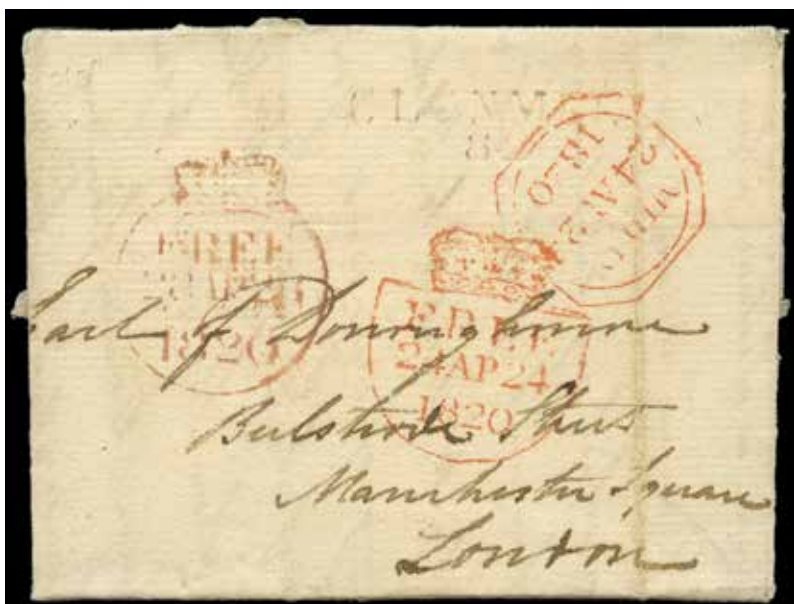 CLONM
8
1820
24 AP 2
FREE
1820
FREE
24AP24
1820
Earl of Donoughmore
Bulstrode Street
Manchester Square
London